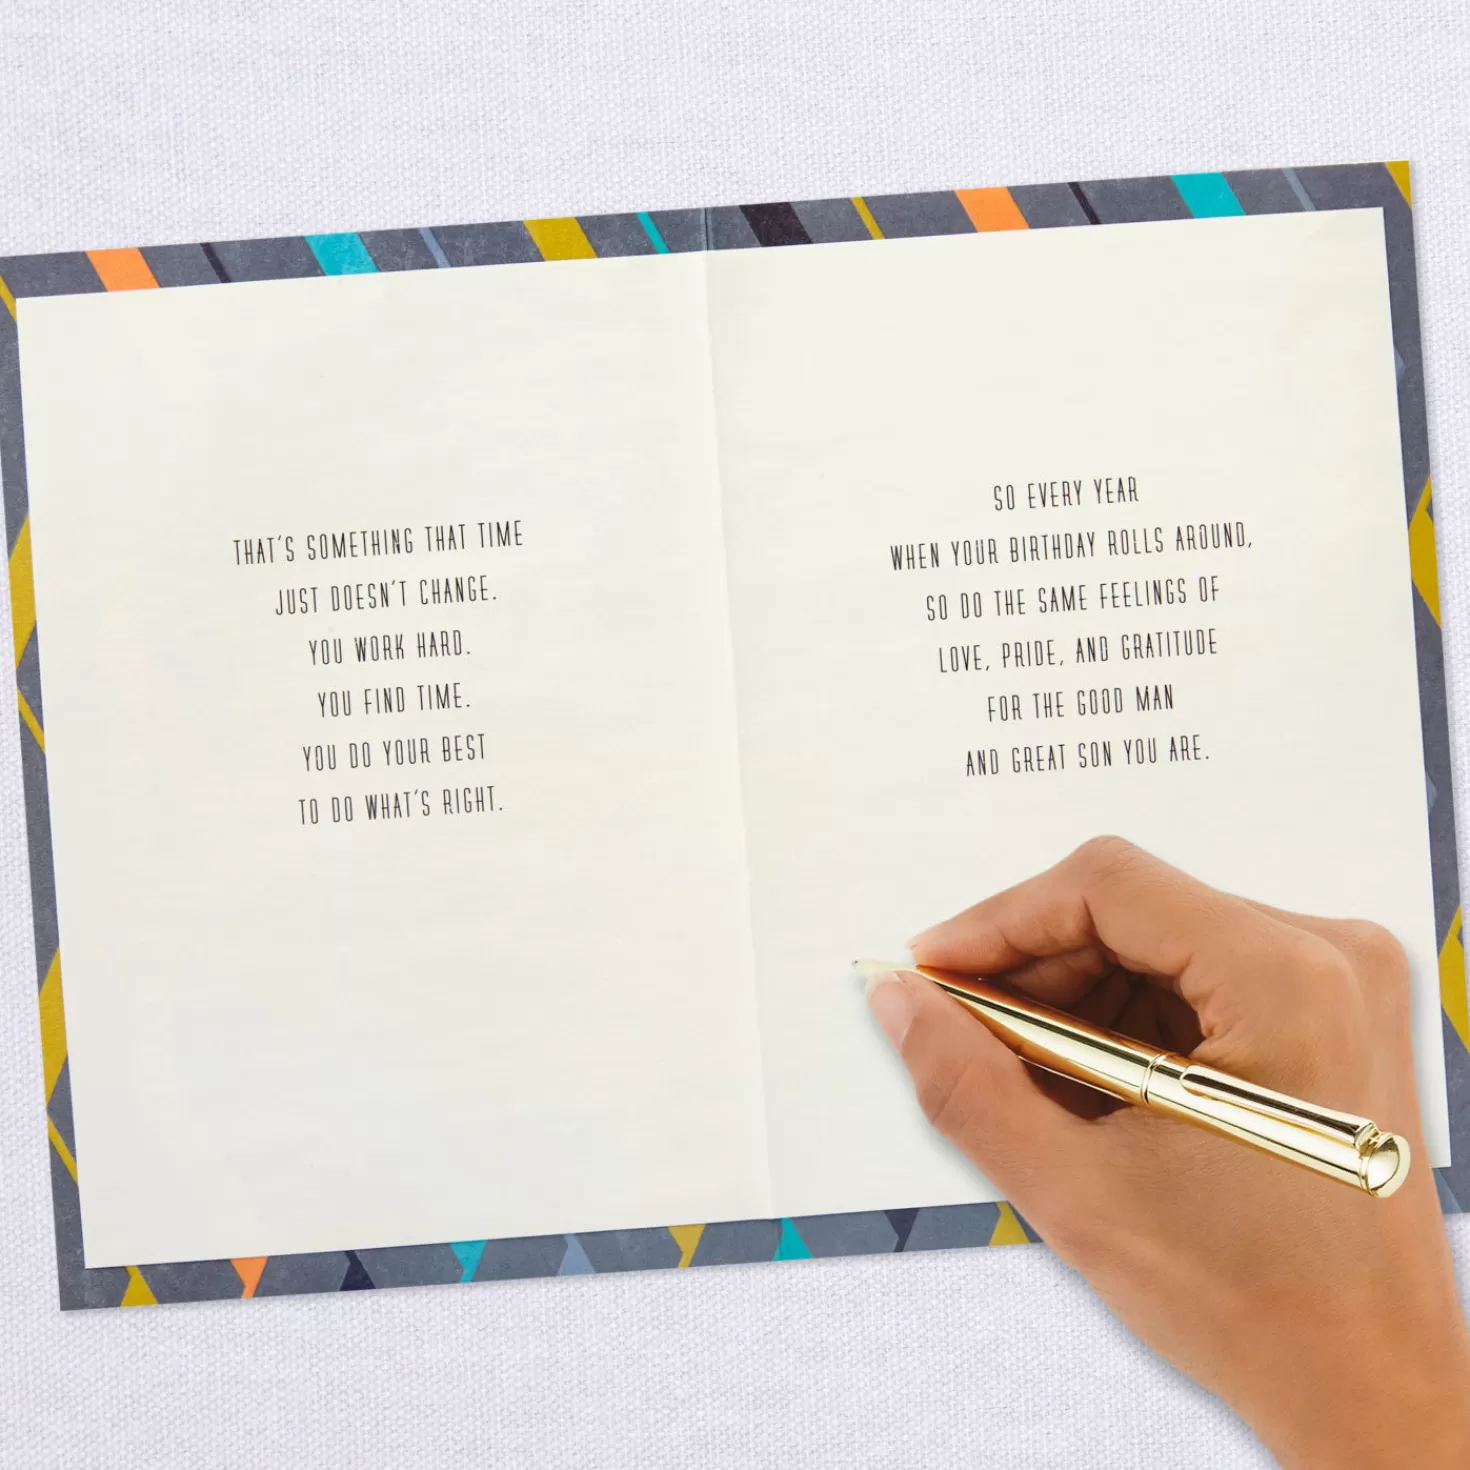 THAT'S SOMETHING THAT TIME
JUST DOESN'T CHANGE.
YOU WORK HARD.
YOU FIND TIME.
YOU DO YOUR BEST
TO DO WHAT'S RIGHT.
SO EVERY YEAR
WHEN YOUR BIRTHDAY ROLLS AROUND,
SO DO THE SAME FEELINGS OF
LOVE, PRIDE, AND GRATITUDE
FOR THE GOOD MAN
AND GREAT SON YOU ARE.